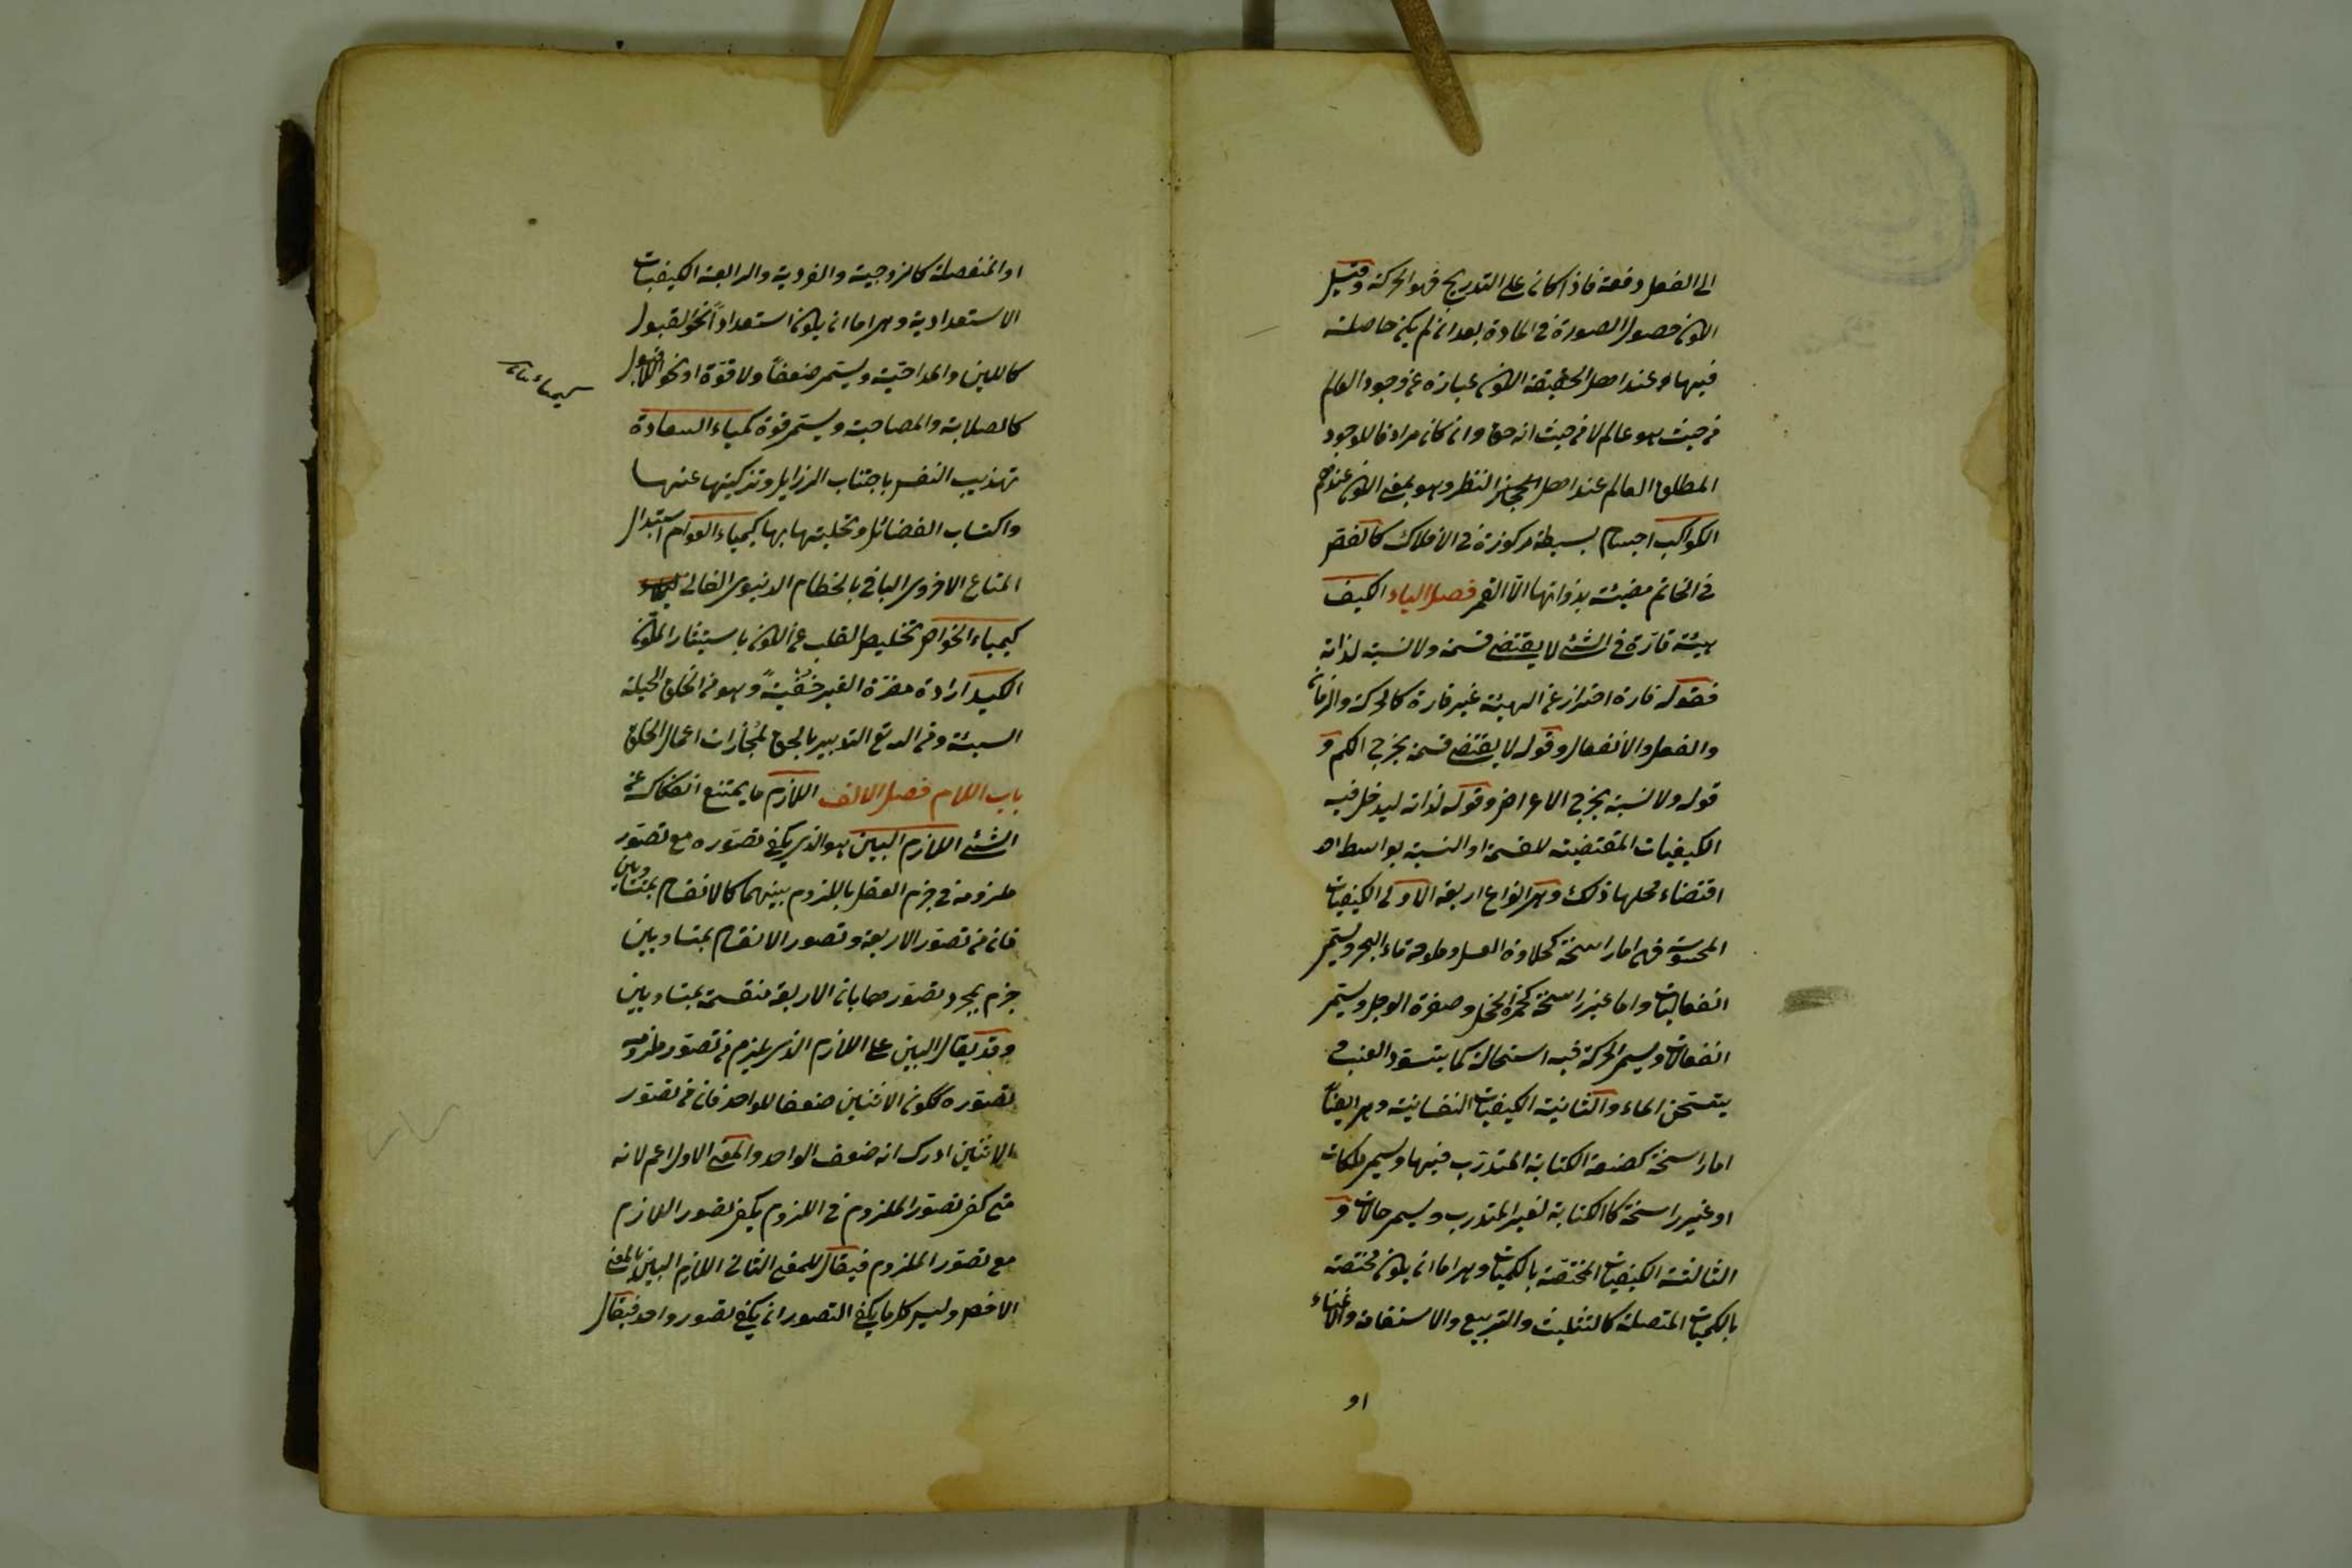 الى الفعل دفعة فاذا كان على التدريج فهو الحركة وقيل
الكون حصول الصورة فى المادة بعد ان لم يكن حاصلة
فيها وعند اهل الحقيقة الكون عبارة عن وجود العالم
من حيث هو عالم لا من حيث انه حق وان كان مرادفا للوجود
المطلق العالم عند اهل النظر وهو بمعنى الكون عندهم
الكواكب اجسام بسيطة مركوزة فى الافلاك كالفص
فى الخاتم مضيئة بذواتها الا القمر فصل الياء الكيف
هيئة قارة فى الشئ لا يقتضى قسمة ولا نسبة لذاته
فقوله قارة احتراز عن الهيئة غير قارة كالحركة والزمان
والفعل والانفعال وقوله لا يقتضى قسمة يخرج الكم و
قوله ولا نسبة يخرج الاعراض وقوله لذاته ليدخل فيه
الكيفيات المقتضية للقسمة او النسبة بواسطة
اقتضاء محلها ذلك وهى انواع اربعة الاولى الكيفيات
المحسوسة فهى اما راسخة كحلاوة العسل وملوحة ماء البحر ويسمى
انفعاليات واما غير راسخة كحمرة الخجل وصفرة الوجل ويسمى
انفعالات ويسمى الحركة فيه استحالة كما يتسود العنب و
يتسخن الماء والثانية الكيفيات النفسانية وهى ايضاً
اما راسخة كصنعة الكتابة المتدرب فيها ويسمى ملكات
او غير راسخة كالكتابة لغير المتدرب ويسمى حالات و
الثالثة الكيفيات المختصة بالكميات وهى اما ان يكون مختصة
بالكميات المتصلة كالتثليث والتربيع والاستقامة والانحناء
او
او المنفصلة كالزوجية والفردية والرابعة الكيفيات
الاستعدادية وهى اما ان يكون استعداداً نحو القبول
كاللين والممراضية ويسمى ضعفاً ولا قوة او نحو اللاقبول
كالصلابة والمصاحية ويسمى قوة كمياء السعادة
تهذيب النفس باجتناب الرزايل وتزكيتها عنها
واكتساب الفضائل وتحليتها بها كيمياء العوام استبدال
المتاع الاخروى الباقى بالحطام الدنيوى الفانى
كيمياء الخواص تخليص القلب عن الكون باستيثار المكون
الكيد ارادة مضرة الغير خفية وهو من الخلق الحيلة
السيئة ومن الله تع التدبير بالحق لمجازات اعمال الخلق
باب اللام فصل الالف اللازم ما يمتنع انفكاكه عن
الشئ اللازم البين هو الذى يكفى تصوره مع تصور
ملزومه فى جزم العقل باللزوم بينهما كالانقسام بمتساويين
فان من تصور الاربعة وتصور الانقسام بمتساويين
جزم بمجرد تصورهما بان الاربعة منقسمة بمتساويين
وقد يقال البين على اللازم الذى يلزم من تصور ملزومه
تصوره ككون الاثنين ضعفا للواحد فان من تصور
الاثنين ادرك انه ضعف الواحد والمعنى الاول اعم لانه
متى كفى تصور الملزوم فى اللزوم يكفى تصور اللازم
مع تصور الملزوم فيقال للمعنى الثانى اللازم البين بالمعنى
الاخص وليس كل ما يكفى التصوران يكفى تصور واحد فيقال